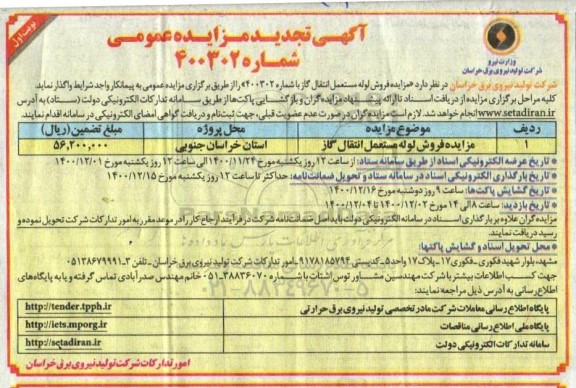 نوبت اول
آگهی تجدید مزایده عمومی
شماره ۴۰۰۳۰۲
وزارت نیرو
شرکت تولید نیروی برق خراسان
شرکت تولید نیروی برق خراسان در نظر دارد «مزایده فروش لوله مستعمل انتقال گاز با شماره ۴۰۰۳۰۲» را از طریق برگزاری مزایده عمومی به پیمانکار واجد شرایط واگذار نماید.
کلیه مراحل برگزاری مزایده از دریافت اسناد تا ارائه پیشنهاد مزایده گران و بازگشایی پاکت‌ها از طریق سامانه تدارکات الکترونیکی دولت (ستاد) به آدرس
www.setadiran.ir انجام خواهد شد. لازم است مزایده گران در صورت عدم عضویت قبلی، جهت ثبت نام و دریافت گواهی امضای الکترونیکی در سامانه اقدام نمایند.
ردیف موضوع مزایده محل پروژه مبلغ تضمین (ریال)
۱ مزایده فروش لوله مستعمل انتقال گاز استان خراسان جنوبی ۵۶,۲۰۰,۰۰۰
* تاریخ عرضه الکترونیکی اسناد از طریق سامانه ستاد: از ساعت ۱۲ روز یکشنبه مورخ ۱۴۰۰/۱۱/۲۴ الی ساعت ۱۲ روز یکشنبه مورخ ۱۴۰۰/۱۲/۰۱
* تاریخ بارگذاری الکترونیکی اسناد در سامانه ستاد و تحویل ضمانت‌نامه: حداکثر تا ساعت ۱۲ روز یکشنبه مورخ ۱۴۰۰/۱۲/۱۵
* تاریخ گشایش پاکت‌ها: ساعت ۹ روز دوشنبه مورخ ۱۴۰۰/۱۲/۱۶
* تاریخ بازدید: ساعت ۸ الی ۱۴ مورخ ۱۴۰۰/۱۲/۰۲ تا ۱۴۰۰/۱۲/۰۴
مزایده گران علاوه بر بارگذاری اسناد در سامانه الکترونیکی دولت باید اصل ضمانت‌نامه شرکت در فرآیند ارجاع کار را در موعد مقرر به امور تدارکات شرکت تحویل نموده و
رسید دریافت نمایند.
* محل تحویل اسناد و گشایش پاکتها:
مشهد، بلوار شهید فکوری - فکوری ۱۷ - پلاک ۱۷ واحد ۵ - کدپستی ۹۱۷۸۱۸۵۷۹۴ - امور تدارکات شرکت تولید نیروی برق خراسان - تلفن ۳ - ۰۵۱۳۸۶۷۹۹۹۱
جهت کسب اطلاعات بیشتر با شرکت مهندسین مشاور توس اشتات با شماره ۳۸۸۳۶۰۷۰-۰۵۱ خانم مهندس صدرآبادی تماس گرفته و یا به پایگاه‌های
اطلاع رسانی به آدرس ذیل مراجعه نمایند:
پایگاه اطلاع رسانی معاملات شرکت مادر تخصصی تولید نیروی برق حرارتی http://tender.tpph.ir
پایگاه ملی اطلاع رسانی مناقصات http://iets.mporg.ir
سامانه تدارکات الکترونیکی دولت http://setadiran.ir
امور تدارکات شرکت تولید نیروی برق خراسان